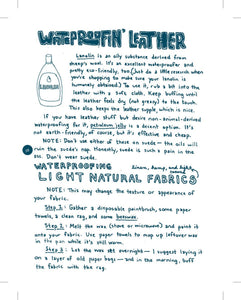 WATERPROOFIN' LEATHER
LANOLIN
Lanolin is an oily substance derived from
sheep's wool. It's an excellent waterproofer and
pretty eco-friendly, too (just do a little research when
you're shopping to make sure your lanolin is
humanely obtained.) To use it, rub a bit into the
leather with a soft cloth. Keep buffing until
the leather feels dry (not greasy) to the touch.
This also keeps the leather supple, which is nice.
If you have leather stuff but desire non-animal-derived
waterproofing for it, petroleum jelly is a decent option. It's
not earth-friendly, of course, but it's effective and cheap.
NOTE: Don't use either of these on suede — the oils will
ruin the suede's nap. Honestly, suede is such a pain in the
ass. Don't wear suede.
WATERPROOFING (linen, hemp, and light canvas)
LIGHT NATURAL FABRICS
NOTE: This may change the texture or appearance of
your fabric.
Step 1: Gather a disposable paintbrush, some paper
towels, a clean rag, and some beeswax.
Step 2: Melt the wax (stove or microwave) and paint it
onto your fabric. Use paper towels to mop up leftover wax
in the pan while it's still warm.
Step 3: Let the wax set overnight — I suggest laying it
on a layer of old paper bags — and in the morning, buff
the fabric with the rag.